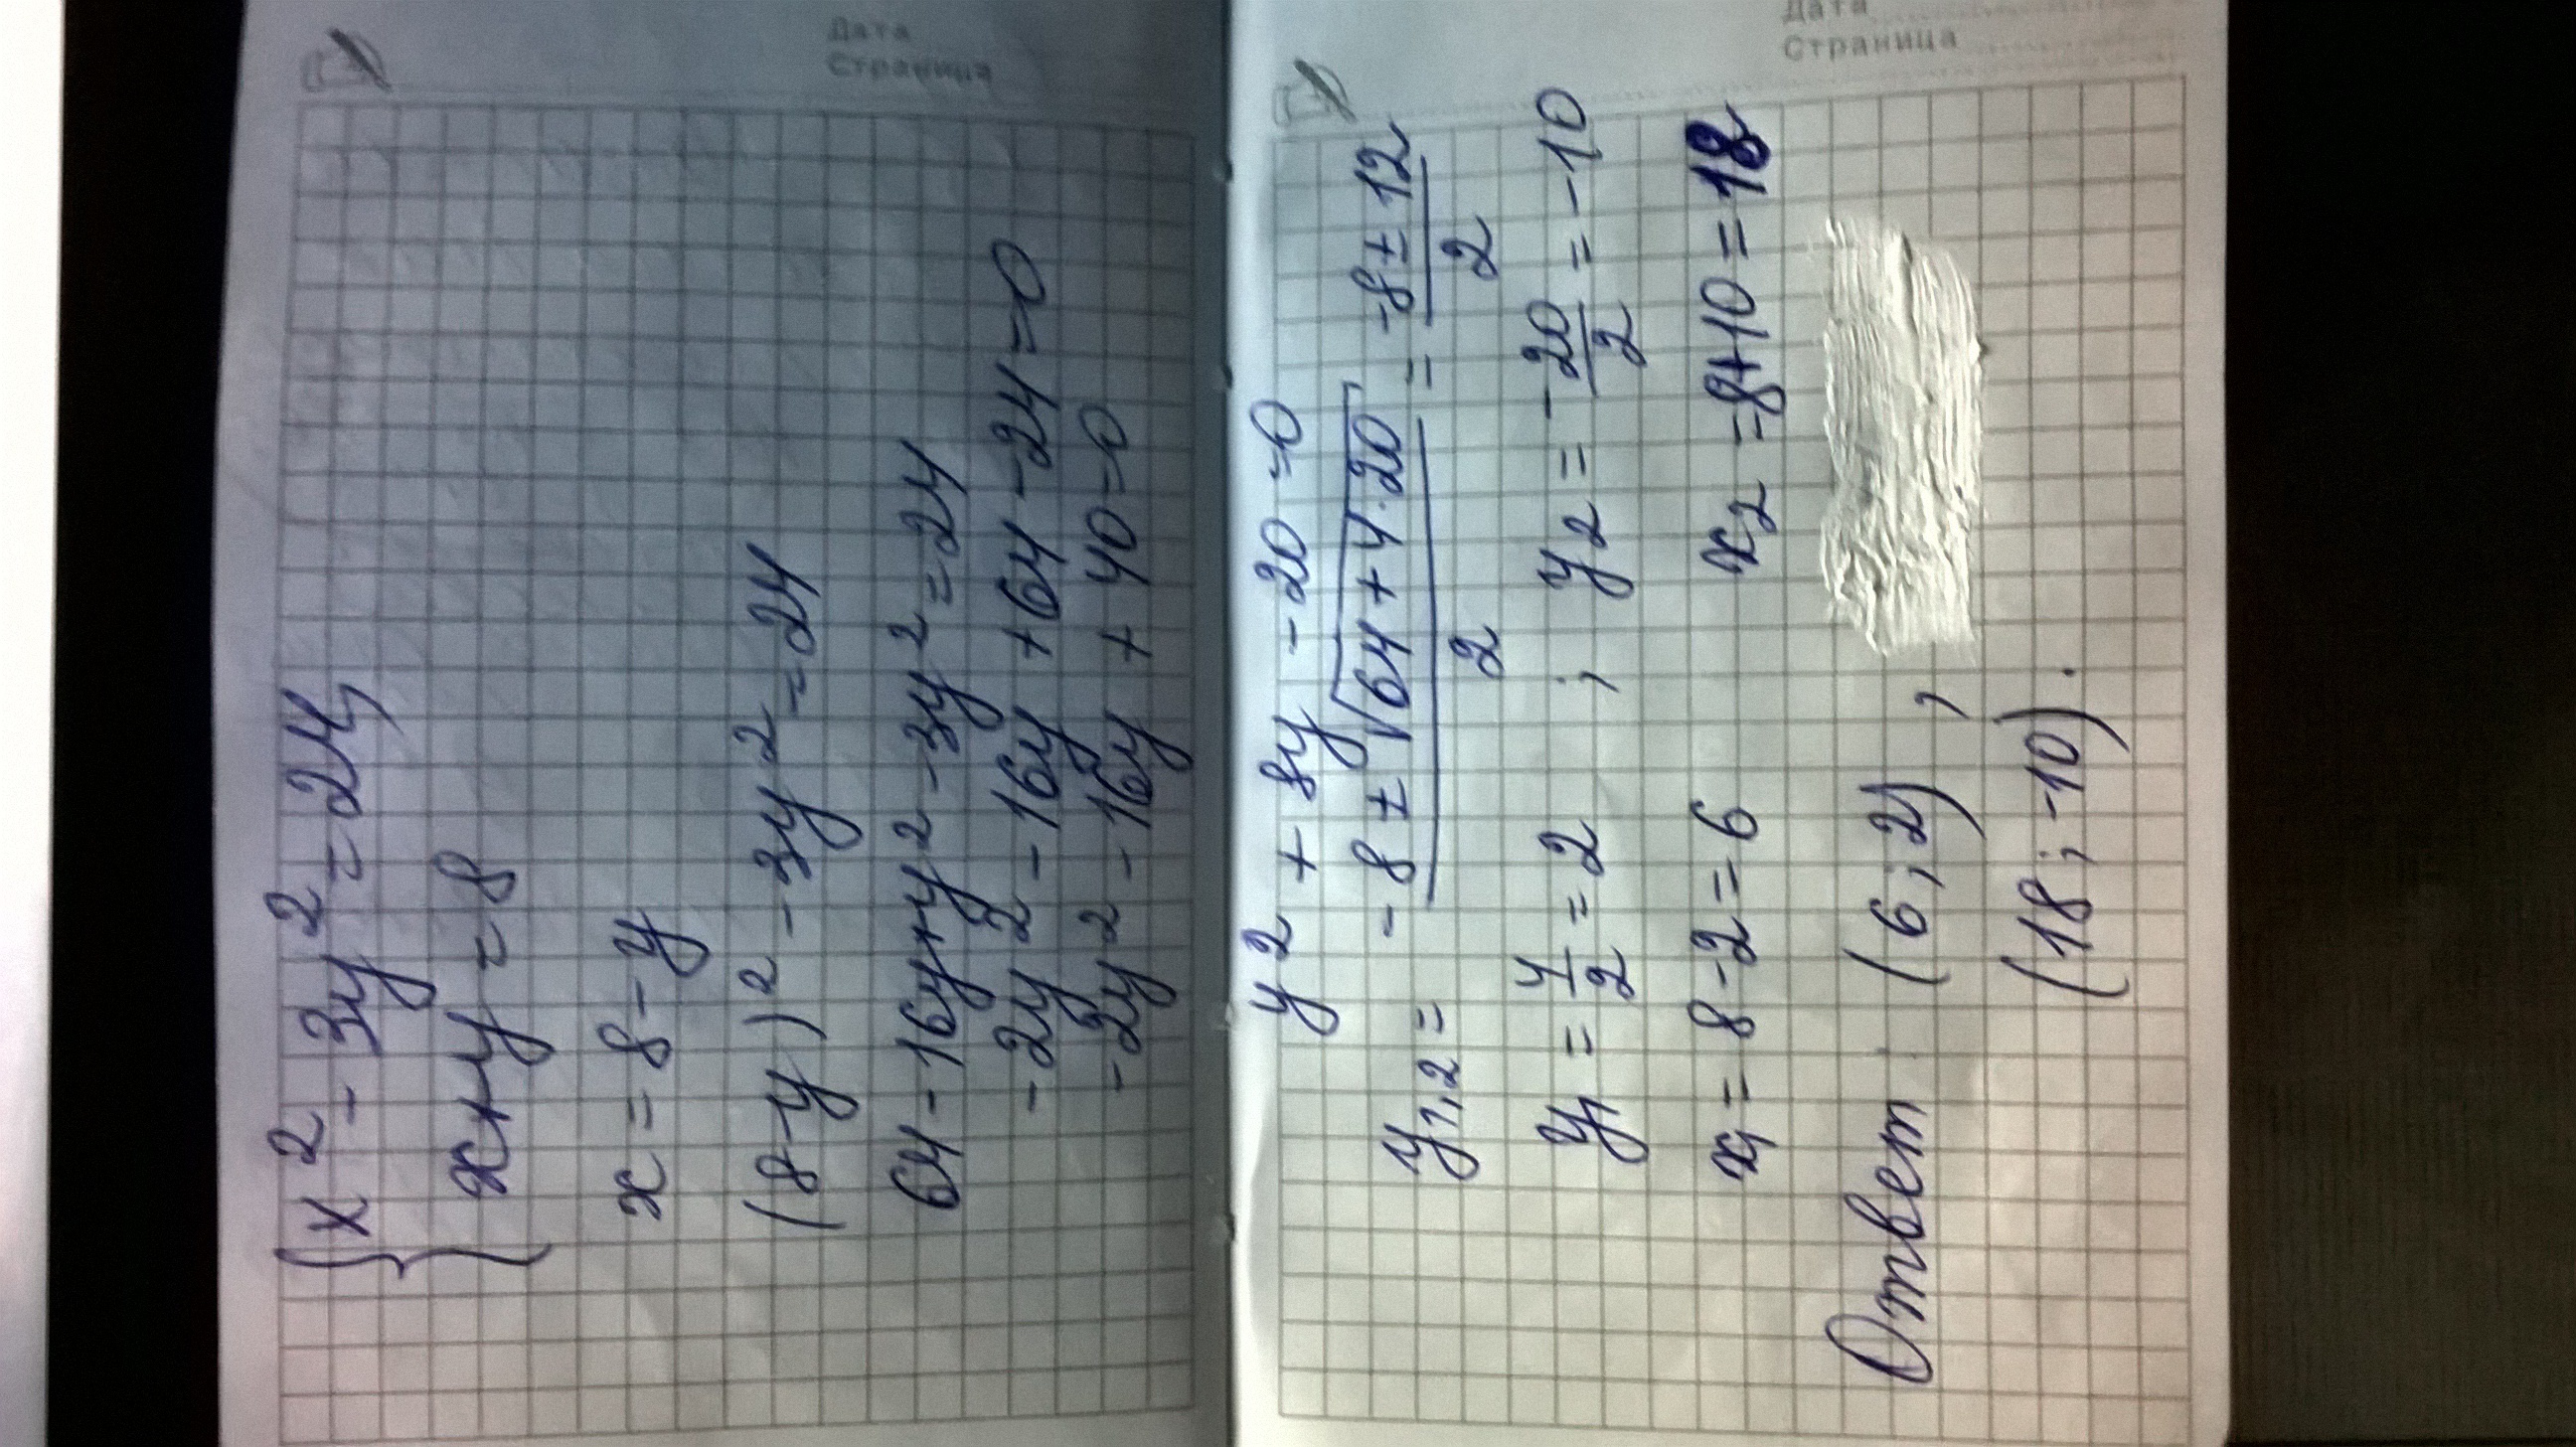 Дата
Страница
{x² - 3y² = 24,
x+y = 8
x = 8 - y
(8-y)² - 3y² = 24
64 - 16y + y² - 3y² = 24
-2y² - 16y + 64 - 24 = 0
-2y² - 16y + 40 = 0
Дата
Страница
y² + 8y - 20 = 0
y1,2 = (-8 ± √(64 + 4·20))/2 = (-8 ± 12)/2
y1 = 4/2 = 2 ; y2 = -20/2 = -10
x1 = 8 - 2 = 6 x2 = 8+10 = 18
Ответ: (6 ; 2) ,
(18 ; -10) .